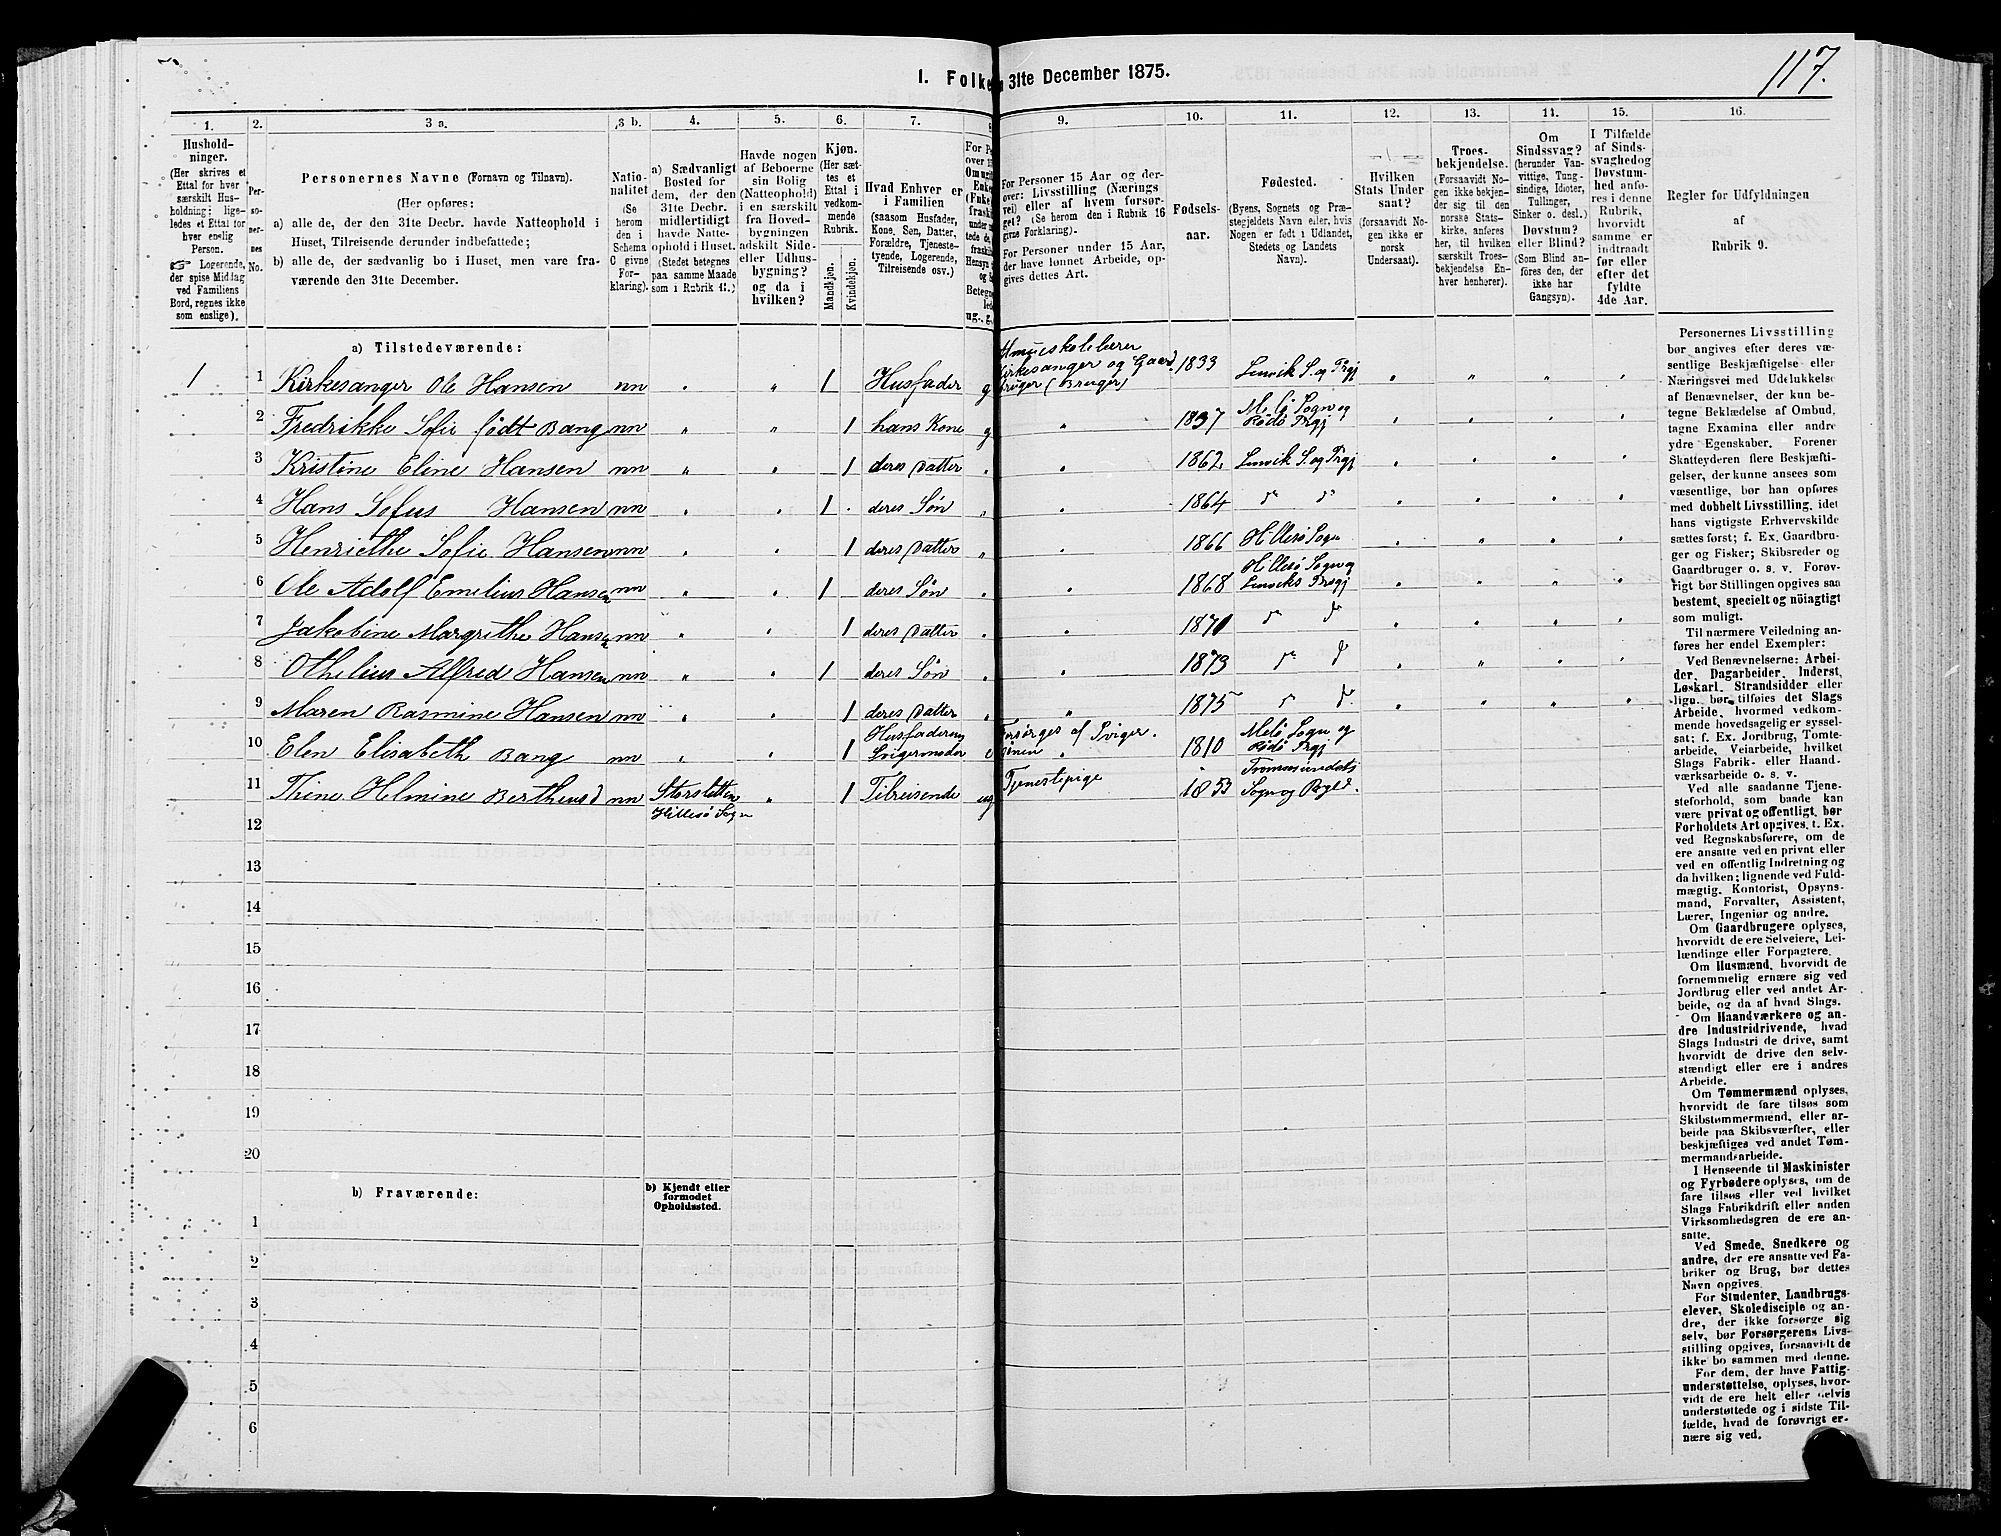 117.
1. Folke
n 31te December 1875.
1.
2.
3 a.
3 b.
4.
5.
6.
7.
8
9.
10.
11.
12.
13.
14.
15.
16.
Hushold-
ninger.
(Her skrives et
Ettal for hver
særskilt Hus-
holdning; lige-
ledes et Ettal for
hver enslig
Person.
☞ Logerende,
der spise Middag
ved Familiens
Bord, regnes ikke
som enslige).
Per-
so-
ner-
nes
No.
Personernes Navne (Fornavn og Tilnavn).
(Her opføres:
a) alle de, der den 31te Decbr. havde Natteophold i
Huset, Tilreisende derunder indbefattede;
b) alle de, der sædvanlig bo i Huset, men vare fra-
værende den 31te December.
Natio-
nalitet
(Se
herom
den i
Schema
C givne
For-
klaring).
a) Sædvanligt
Bosted for
dem, der den
31te Decbr.
midlertidigt
havde Natte-
ophold i Huset.
(Stedet betegnes
paa samme Maade
som i Rubrik 11.)
Havde nogen
af Beboerne
sin Bolig
(Natteophold)
i en særskilt
fra Hoved-
bygningen
adskilt Side-
eller Udhus-
bygning?
og da i
hvilken?
Kjøn.
(Her sæt-
tes et
Ettal i
vedkom-
mende
Rubrik.
Mandkjøn.
Kvindekjøn.
Hvad Enhver er
i Familien
(saasom Husfader,
Kone, Søn, Datter,
Forældre, Tjeneste-
tyende, Logerende,
Tilreisende osv.)
For Personer 15 Aar og der-
over: Livsstilling (Nærings
vei) eller af hvem forsør-
get? (Se herom den i Rubrik 16
givne Forklaring).
For Personer under 15 Aar,
der have lønnet Arbeide, op-
gives dettes Art.
Fødsels-
aar.
Fødested.
(Byens, Sognets og Præ-
stegjeldets Navn eller, hvis
Nogen er født i Udlandet,
Stedets og Landets
Navn).
Hvilken
Stats Under
saat?
(forsaavidt No-
gen ikke er
norsk
Undersaat).
Troes-
bekjendelse.
(Forsaavidt No-
gen ikke bekjen-
der sig til den
norske Stats-
kirke, anføres
her, til hvilken
særskilt Troes-
bekjendelse En-
hver henhører).
Om
Sindssvag?
(herunder Van-
vittige, Tung-
sindige, Idioter,
Tullinger,
Sinker o. desl.)
Døvstum?
eller Blind?
(Som Blind an-
føres den, der
ikke har
Gangsyn).
I Tilfælde
af Sinds-
svaghed og
Døvstum-
hed anfø-
res i denne
Rubrik,
hvorvidt
samme er
indtraadt
før eller
efter det
fyldte
4de Aar.
Regler for Udfyldningen
af
Rubrik 9.
a) Tilstedeværende:
1 1 Kirkesanger Ole Hansen nn " " 1 Husfader g Almueskolelærer Kirkesanger og Gaardbruger (Bruger) 1833 Lenvik S. og Prgj
2 Fredrikke Sofie født Bang nn " " 1 hans Kone g " 1837 Melö Sogn og Rödö Prgj
3 Kristine Eline Hansen nn " " 1 deres Datter " " 1862 Lenvik S. og Prgj
4 Hans Sofus Hansen nn " " 1 deres Søn " " 1864 do do
5 Henriethe Sofie Hansen nn " " 1 deres Datter " " 1866 Hillesö Sogn
6 Ole Adolf Emelius Hansen nn " " 1 deres Søn " " 1868 Hillesö Sogn og Lenviks Prgj
7 Jakobine Margrethe Hansen nn " " 1 deres Datter " " 1871 do do
8 Othelius Alfred Hansen nn " " 1 deres Søn " " 1873 do do
9 Maren Rasmine Hansen nn " " 1 deres Datter " " 1875 do do
10 Elen Elisabeth Bang nn " " 1 Husfaderens Svigermoder e Forsørges af Svigersønen 1810 Melö Sogn og Rödö Prgj
11 Thine Helmine Bertheusd nn Storsletten Hillesö Sogn " 1 Tilreisende ug Tjenestepige 1853 Tromsøsundets Sogn og Prgld.
12
13
14
15
16
17
18
19
20
b) Fraværende:
b) Kjendt eller
formodet
Opholdssted.
1
2
3
4
5
6
Personernes Livsstilling
bør angives efter deres væ-
sentlige Beskjæftigelse eller
Næringsvei med Udelukkelse
af Benævnelser, der kun be-
tegne Beklædelse af Ombud,
tagne Examina eller andre
ydre Egenskaber. Forener
Skatteyderen flere Beskjæfti-
gelser, der kunne ansees som
væsentlige, bør han opføres
med dobbelt Livsstilling, idet
hans vigtigste Erhvervskilde
sættes først; f. Ex. Gaardbru-
ger og Fisker; Skibsreder og
Gaardbruger o. s. v. Forøv-
rigt bør Stillingen opgives saa
bestemt, specielt og nöiagtigt
som muligt.
Til nærmere Veiledning an-
føres her endel Exempler:
Ved Benævnelserne: Arbei-
der, Dagarbeider, Inderst,
Løskarl, Strandsidder eller
lign. bør tilføies det Slags
Arbeide, hvormed vedkom-
mende hovedsagelig er syssel-
sat; f. Ex. Jordbrug, Tomte-
arbeide, Veiarbeide, hvilket
Slags Fabrik- eller Haand-
værksarbeide o. s. v.
Ved alle saadanne Tjene-
steforhold, som baade kan
være privat og offentligt, bør
Forholdets Art opgives, t. Ex.
ved Regnskabsførere, om de
ere ansatte ved en privat eller
ved en offentlig Indretning og
da hvilken; lignende ved Fuld-
mægtig, Kontorist, Opsyns-
mand, Forvalter, Assistent,
Lærer, Ingeniør og andre.
Om Gaardbrugere oplyses,
hvorvidt de ere Selveiere, Lei-
lændinge eller Forpagtere.
Om Husmænd, hvorvidt de
fornemmelig ernære sig ved
Jordbrug eller ved andet Ar-
beide, og da af hvad Slags.
Om Haandværkere og an-
dre Industridrivende, hvad
Slags Industri de drive, samt
hvorvidt de drive den selv-
stændigt eller ere i andres
Arbeide.
Om Tømmermænd oplyses,
hvorvidt de fare tilsøs som
Skibstømmermænd, eller ar-
beide paa Skibsværfter, eller
beskjæftiges ved andet Tøm-
mermandsarbeide.
I Henseende til Maskinister
og Fyrbødere oplyses, om de
fare tilsøs eller ved hvilket
Slags Fabrikdrift eller anden
Virksomhedsgren de ere an-
satte.
Ved Smede, Snedkere og
andre, der ere ansatte ved Fa-
briker og Brug, bør dettes
Navn opgives.
For Studenter, Landbrugs-
elever, Skoledisciple og an-
dre, der ikke forsørge sig
selv, bør Forsørgerens Livs-
stilling opgives, forsaavidt de
ikke bo sammen med denne.
For dem, der have Fattig-
understøttelse, oplyses, hvor-
vidt de ere helt eller delvis
understøttede og i sidste Til-
fælde, hvad de forøvrigt er-
nære sig ved.